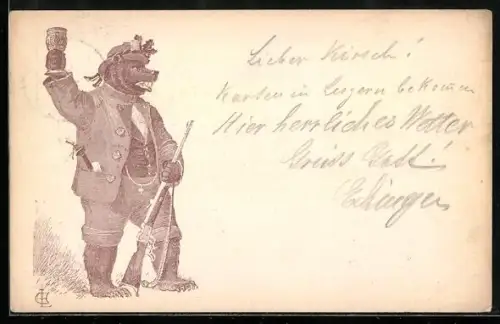 Lieber Kirsch!
Karten in Lugern bekommen
Hier herrliches Wetter
Grüss Gott!